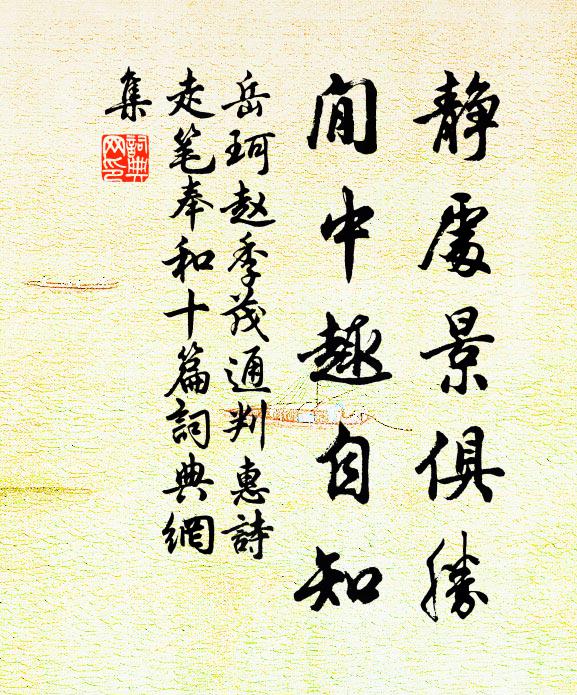 静處景俱勝
閒中趣自知
岳珂赵季茂通判惠詩
走笔奉和十篇詞典網
集
詞典
网印